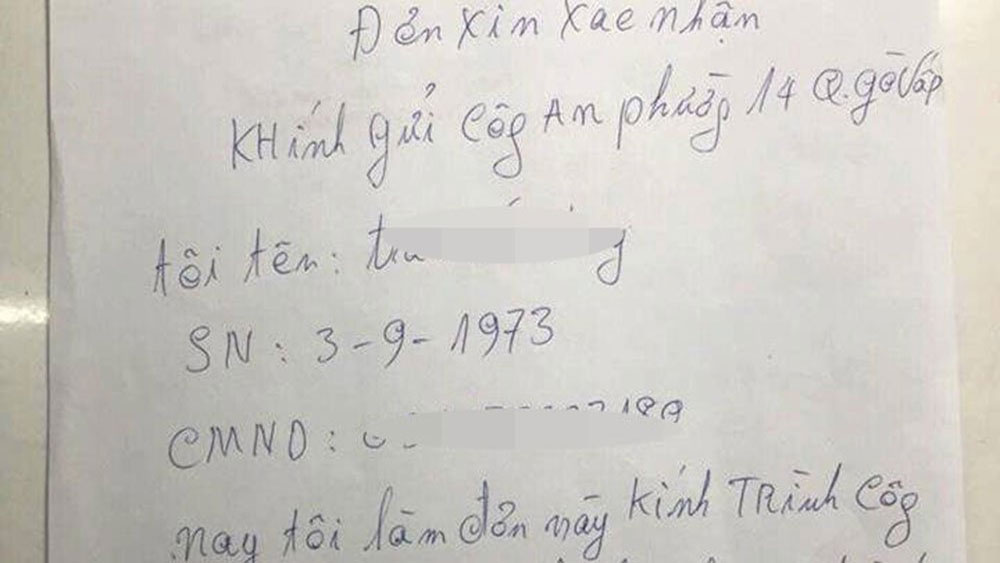 Đơn xin xác nhận
KHính gửi Côg An phườg 14 Q. gò Vấp
tôi tên:
SN: 3-9-1973
CMND:
nay tôi làm đơn này Kính TRình Côg